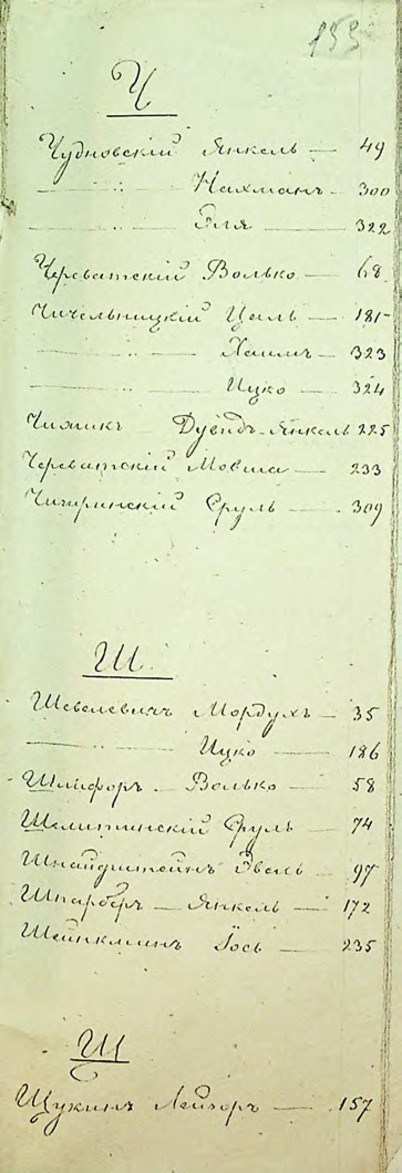 153
Ч
Чудновскій Янкель — 49
— " — Нахманъ — 300
— " — Эля — 322
Череватскій Волько — 68
Чичельницкій Цаль — 181
— " — Хаимъ — 323
— " — Ицко — 324
Чижикъ Дувидъ-Янкель 225
Череватскій Мовша — 233
Чигиринскій Сруль — 309
Ш
Шевелевичъ Мордухъ — 35
— " — Ицко — 186
Шлифоръ — Волько — 58
Сруль — 74
Шнайдштейнъ — 97
Шпарберъ — Янкель — 172
Шейнкманъ Іось — 235
Щ
Щукинъ Лейзоръ — 157